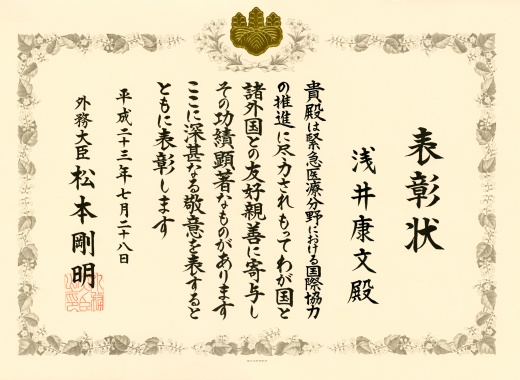 表彰状
浅井康文殿
貴殿は緊急医療分野における国際協力
の推進に尽力されもってわが国と
諸外国との友好親善に寄与し
その功績顕著なものがあります
ここに深甚なる敬意を表すると
ともに表彰します
平成二十三年七月二十八日
外務大臣 松本剛明